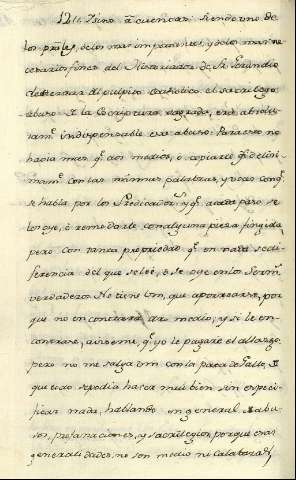 121. Y sino à cuentas: siendo uno de
los prales, ô los mas importantes, y ôlos mas ne
cesarios fines del Historiador de Fr. Gerundio
desterrar del pulpito Catholico el sacrilego
abuso de la Escriptura sagrada, era absolu
tamte indispensable ese abuso: Para eso no
havia mas qe dos medios, o copiarle qe delini
mamte con las mismas palabras, y voces conqe
se habla por los Predicadores, y qe acada paso se
les oye, ô remedarle con alguna pieza fingida,
pero con tanta propriedad qe en nada se di
ferencia del que se lee, ô se oye en los Sermes
verdaderos. No tiene Vm. que apurarse, por
que no encontrará otro medio, y si le en
contrare, aviseme, qe yo le pagaré el allazgo:
pero no me salga Vm con la pata de Gallo, de
que esto se podia hacer mui bien sin especi
ficar nada, hablando en general de abu
sos, profanaciones, y sacrilegios, porque esas
generalidades no son medio ni Calabaza